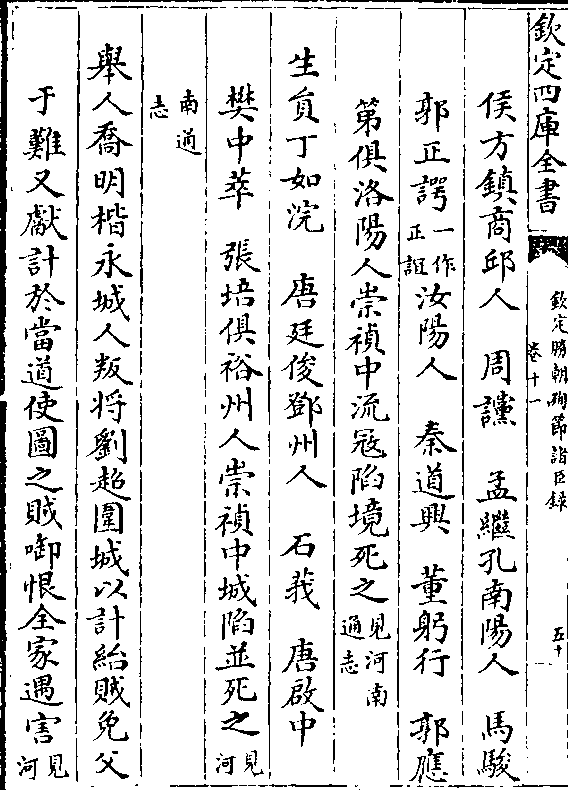 欽定四庫全書
欽定勝朝殉節諸臣錄
卷十一
五十
侯方鎮商邱人　周讜　孟繼孔南陽人　馬駿
郭正諤一作正誼汝陽人　秦道興　董躬行　郭應
第俱洛陽人崇禎中流寇陷境死之見河南通志
生員丁如浣　唐廷俊鄧州人　石莪　唐啟中
樊中萃　張培俱裕州人崇禎中城陷並死之見河
南通志
舉人喬明楷永城人叛将劉超圍城以計紿賊免父
于難又獻計於當道使圖之賊啣恨全家遇害見河